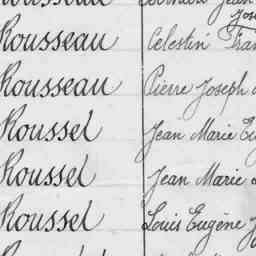 Jean
Jose
Rousseau Célestin Fran
Rousseau Pierre Joseph
Roussel Jean Marie Eu
Roussel Jean Marie
Roussel Louis Eugène J